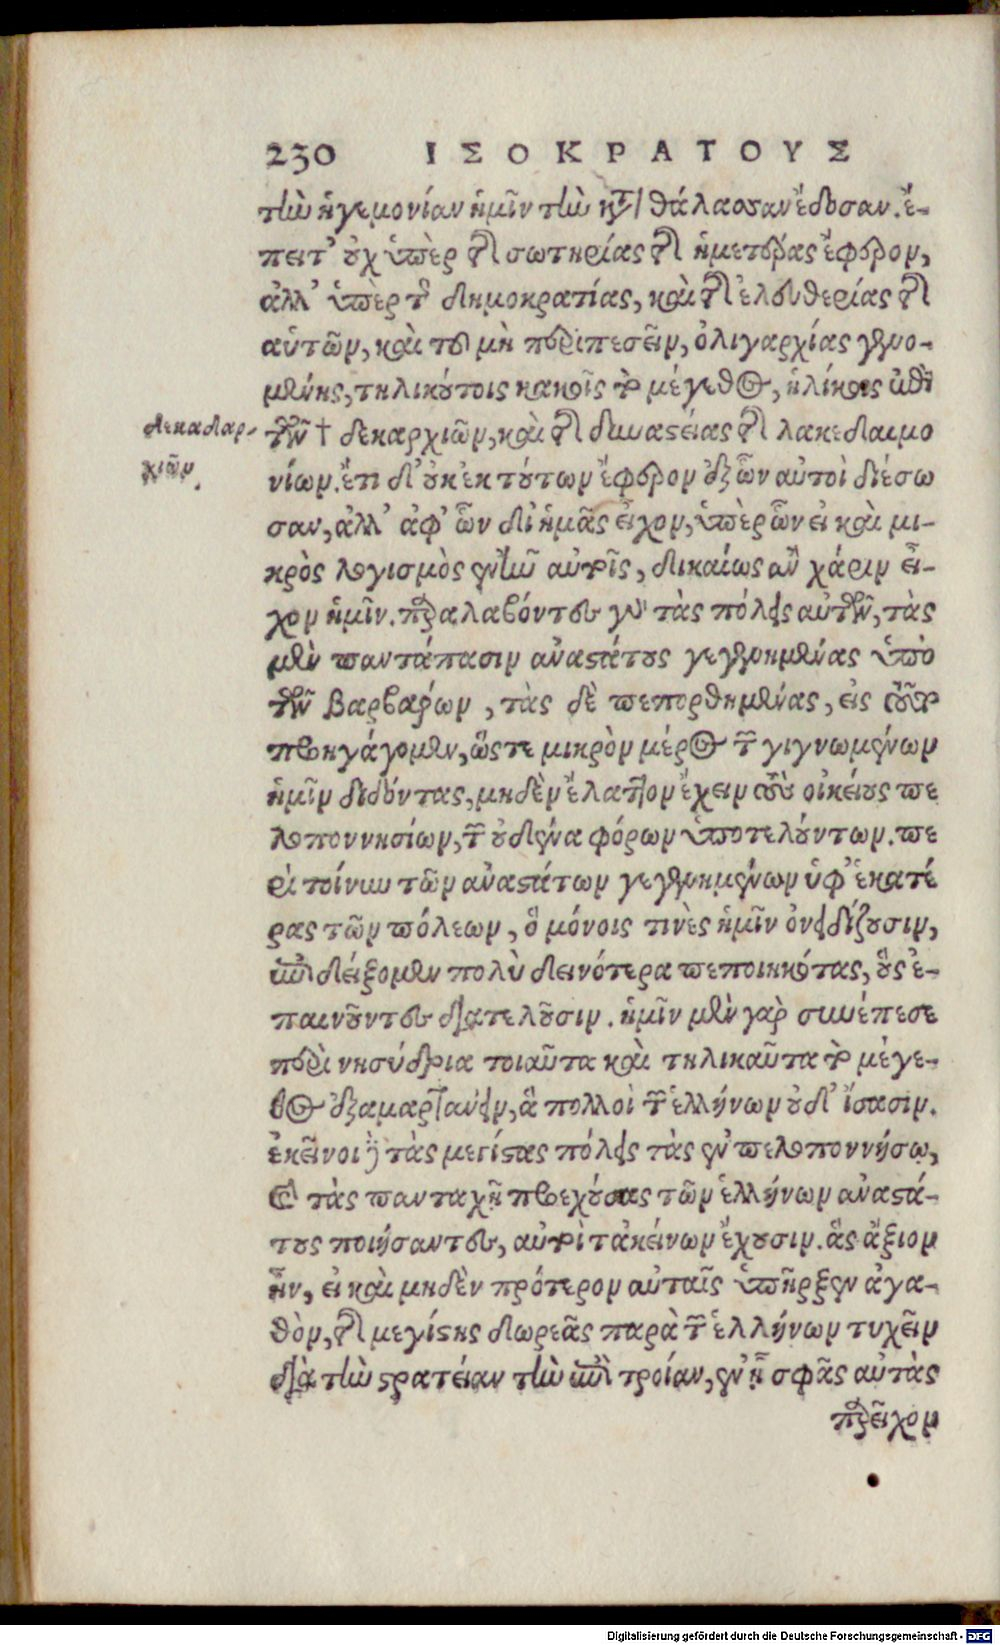 230 ΙΣΟΚΡΑΤΟΥΣ
τὴν ἡγεμονίαν ἡμῖν τὴν κατὰ θάλασσαν ἔδοσαν. ἔ-
πειτ' οὐχ ὑπὲρ τῆς σωτηρίας τῆς ἡμετέρας ἔφερον,
ἀλλ' ὑπὲρ τῆς δημοκρατίας, καὶ τῆς ἐλευθερίας τῆς
αὑτῶν, καὶ τοῦ μὴ περιπεσεῖν, ὀλιγαρχίας γενο-
μένης, τηλικούτοις κακοῖς τὸ μέγεθος, ἡλίκοις ἐπὶ
δεκαδαρ-
χιῶν.
τῶν † δεκαρχιῶν, καὶ τῆς δυναστείας τῆς λακεδαιμο
νίων. ἔτι δ' οὐκ ἐκ τούτων ἔφερον ἐξ ὧν αὐτοὶ διέσω
σαν, ἀλλ' ἀφ' ὧν δι' ἡμᾶς εἶχον, ὑπὲρ ὧν εἰ καὶ μι-
κρὸς λογισμὸς ἐνῆν αὐτοῖς, δικαίως ἂν χάριν εἶ-
χον ἡμῖν. παραλαβόντες γὰρ τὰς πόλεις αὐτῶν, τὰς
μὲν παντάπασιν ἀναστάτους γεγενημένας ὑπὸ
τῶν βαρβάρων, τὰς δὲ πεπορθημένας, εἰς τοῦτο
προηγάγομεν, ὥστε μικρὸν μέρος τῶν γιγνωμένων
ἡμῖν διδόντας, μηδὲν ἔλαττον ἔχειν τοὺς οἰκείους πε
λοποννησίων, τῶν οὐδένα φόρων ὑποτελούντων. πε
ρὶ τοίνυν τῶν ἀναστάτων γεγενημένων ὑφ' ἑκατέ
ρας τῶν πόλεων, ὃ μόνοις τινὲς ἡμῖν ὀνειδίζουσιν,
ἐπιδείξομεν πολὺ δεινότερα πεποιηκότας, οὓς ἐ-
παινοῦντες διατελοῦσιν. ἡμῖν μὲν γὰρ συνέπεσε
περὶ νησύδρια τοιαῦτα καὶ τηλικαῦτα τὸ μέγε-
θος ἐξαμαρτάνειν, ἃ πολλοὶ τῶν ἑλλήνων οὐδ' ἴσασιν.
ἐκεῖνοι δὲ τὰς μεγίστας πόλεις τὰς ἐν πελοποννήσῳ,
καὶ τὰς πανταχῇ προεχούσας τῶν ἑλλήνων ἀναστά-
τους ποιήσαντες, αὐτοὶ τἀκείνων ἔχουσιν. ἃς ἄξιον
ἦν, εἰ καὶ μηδὲν πρότερον αὐταῖς ὑπῆρξεν ἀγα-
θὸν, τῆς μεγίστης δωρεᾶς παρὰ τῶν ἑλλήνων τυχεῖν
διὰ τὴν στρατείαν τὴν ἐπὶ τροίαν, ἐν ᾗ σφᾶς αὐτὰς
παρεῖχον
Digitalisierung gefördert durch die Deutsche Forschungsgemeinschaft - DFG